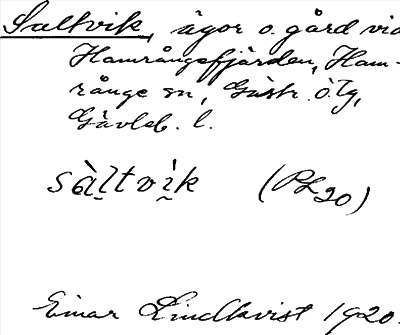 Saltvik, ägor o. gård vid
Hamrångefjärden, Ham-
rånge sn, Gästr. ö. Tg,
Gävleb. l.
sàl̥tvìk (PL20)
Einar Lindkvist 1920.